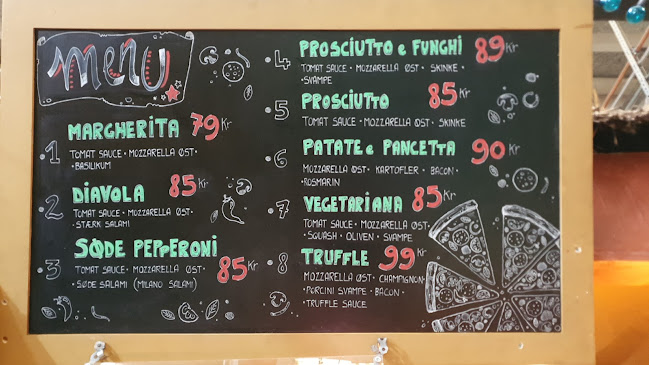 Menu
.1 MARGHERITA 79 Kr
TOMAT SAUCE • MOZZARELLA ØST •
• BASILIKUM
.2 DIAVOLA 85 Kr
TOMAT SAUCE • MOZZARELLA ØST •
STÆRK SALAMI
.3 SØDE PEPPERONI 85 Kr
TOMAT SAUCE • MOZZARELLA ØST •
SØDE SALAMI (MILANO SALAMI)
.4 PROSCIUTTO e FUNGHI 89 Kr
TOMAT SAUCE • MOZZARELLA ØST • SKINKE •
• SVAMPE
.5 PROSCIUTTO 85 Kr
TOMAT SAUCE • MOZZARELLA ØST • SKINKE
.6 PATATE e PANCETTA 90 Kr
MOZZARELLA ØST • KARTOFLER • BACON •
• ROSMARIN
.7 VEGETARIANA 85 Kr
TOMAT SAUCE • MOZZARELLA ØST •
• SQUASH • OLIVEN • SVAMPE
.8 TRUFFLE 99 Kr
MOZZARELLA ØST • CHAMPIGNON •
• PORCINI SVAMPE • BACON •
• TRUFFLE SAUCE